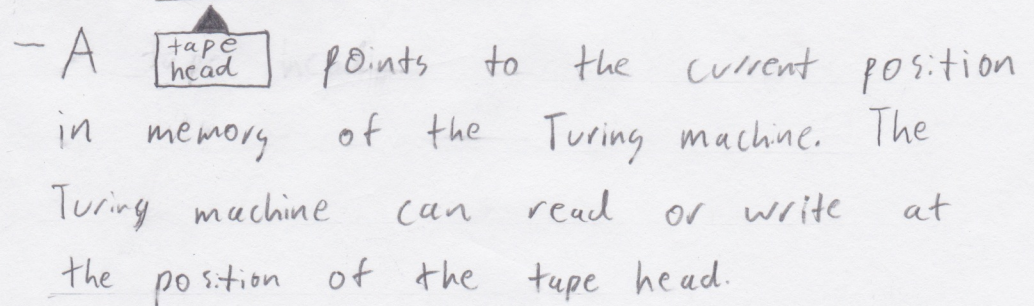 - A tape head points to the current position
in memory of the Turing machine. The
Turing machine can read or write at
the position of the tape head.